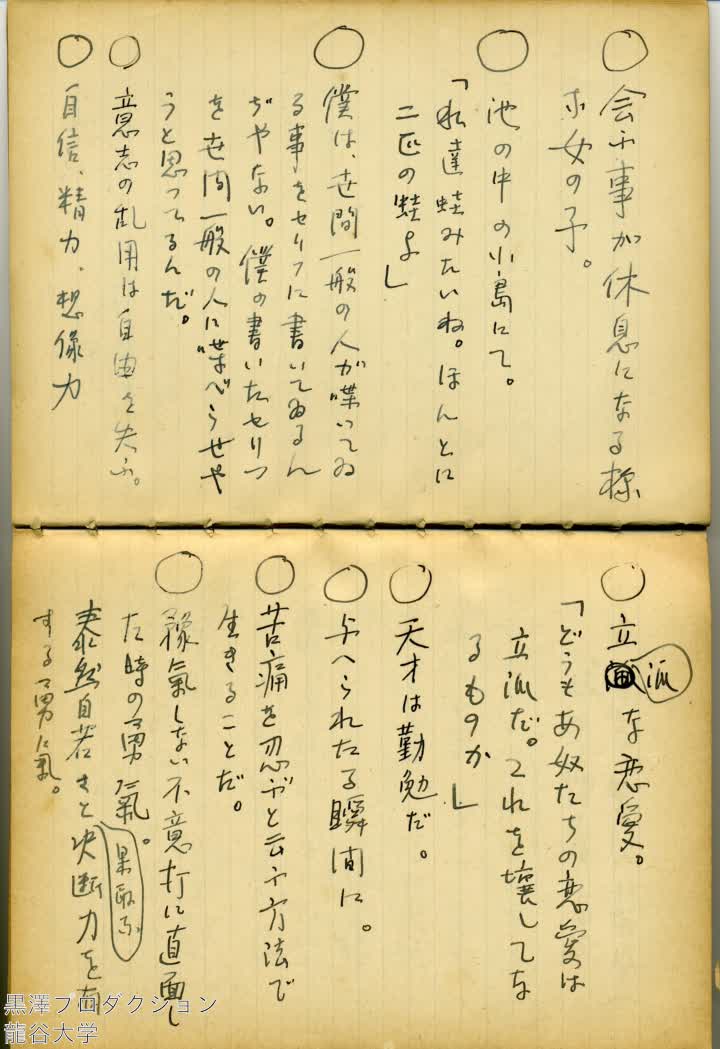 ○会ふ事が休息になる様
な女の子。
○池の中の小島にて。
「私達蛙みたいね。ほんとに
二匹の蛙よ」
○僕は、世間一般の人が喋いてゐ
る事をセリフに書いてゐるん
ぢやない。僕の書いたセリフ
を世間一般の人に喋べらせや
うと思つてるんだ。
○意志の乱用は自由を失ふ。
○自信、精力、想像力
○立派な恋愛。
「どうもあ奴たちの恋愛は
立派だ。これを壊してな
るものか」
○天才は勤勉だ。
○与へられたる瞬間に。
○苦痛を忍ぶと云ふ方法で
生きることだ。
○予氣しない不意打に直面し
た時の勇氣。
泰然自若さと果敢な決断力を有
する勇氣。
黒澤プロダクション
龍谷大学